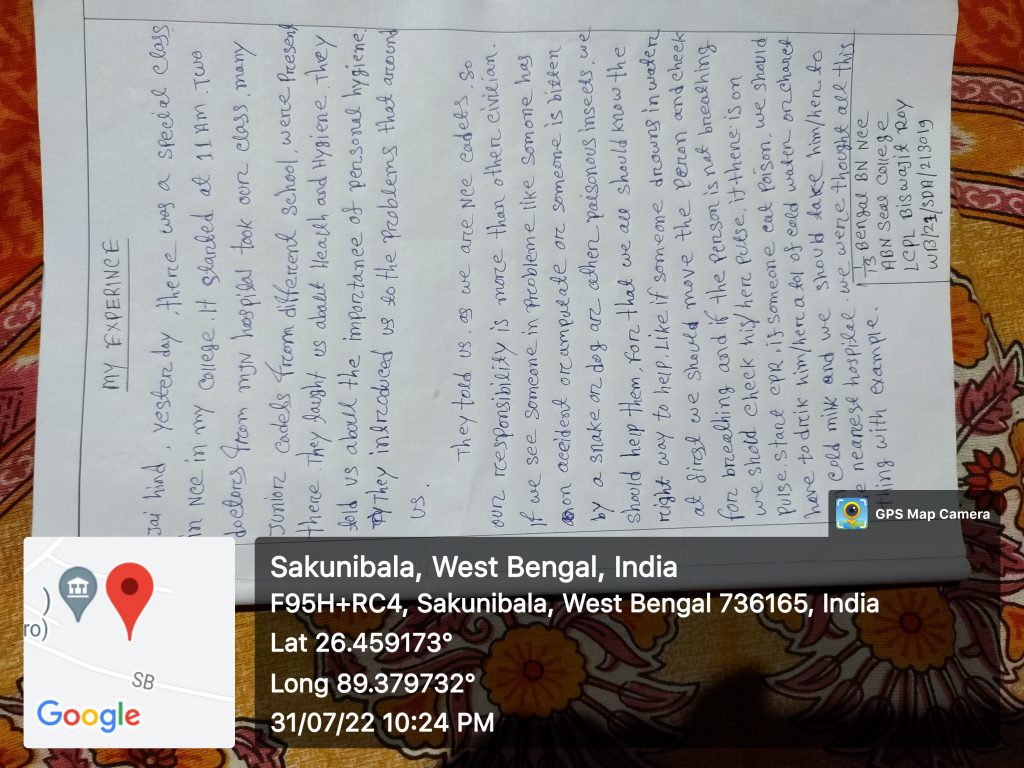 MY EXPERINCE
Jai hind, yesterday there was a special class
in NCC in my college. It started at 11 AM. Two
doctors from mjn hospital took our class many
Junior cadets from different school, were Present
there. They taught us about Health and Hygiene. They
told us about the importance of personal hygiene
They introduced us to the problems that around
us.
They told us as we are Ncc cadets, so
our responsibility is more than other civilian.
if we see someone in probleme like someone has
on accident or amputate or someone is bitten
by a snake or dog or other poisonous insects, we
should help them, for that we all should know the
right way to help. Like if someone drowns in water
at first we should move the person and check
for breathing and if the person is not breathing
we should check his/her pulse, if there is on
pulse. start CPR, if someone eat Poison, we should
have to drink him/her a lot of cold water or charct
cold milk and we should take him/her to
nearest hospital. we were thought all this
thing with example.
13 Bengal BN NCC
ABN Seal College
LCPL BISWAJIT ROY
WB/21/SDA/213019
GPS Map Camera
Sakunibala, West Bengal, India
F95H+RC4, Sakunibala, West Bengal 736165, India
Lat 26.459173°
Long 89.379732°
31/07/22 10:24 PM
ro)
SB
Google